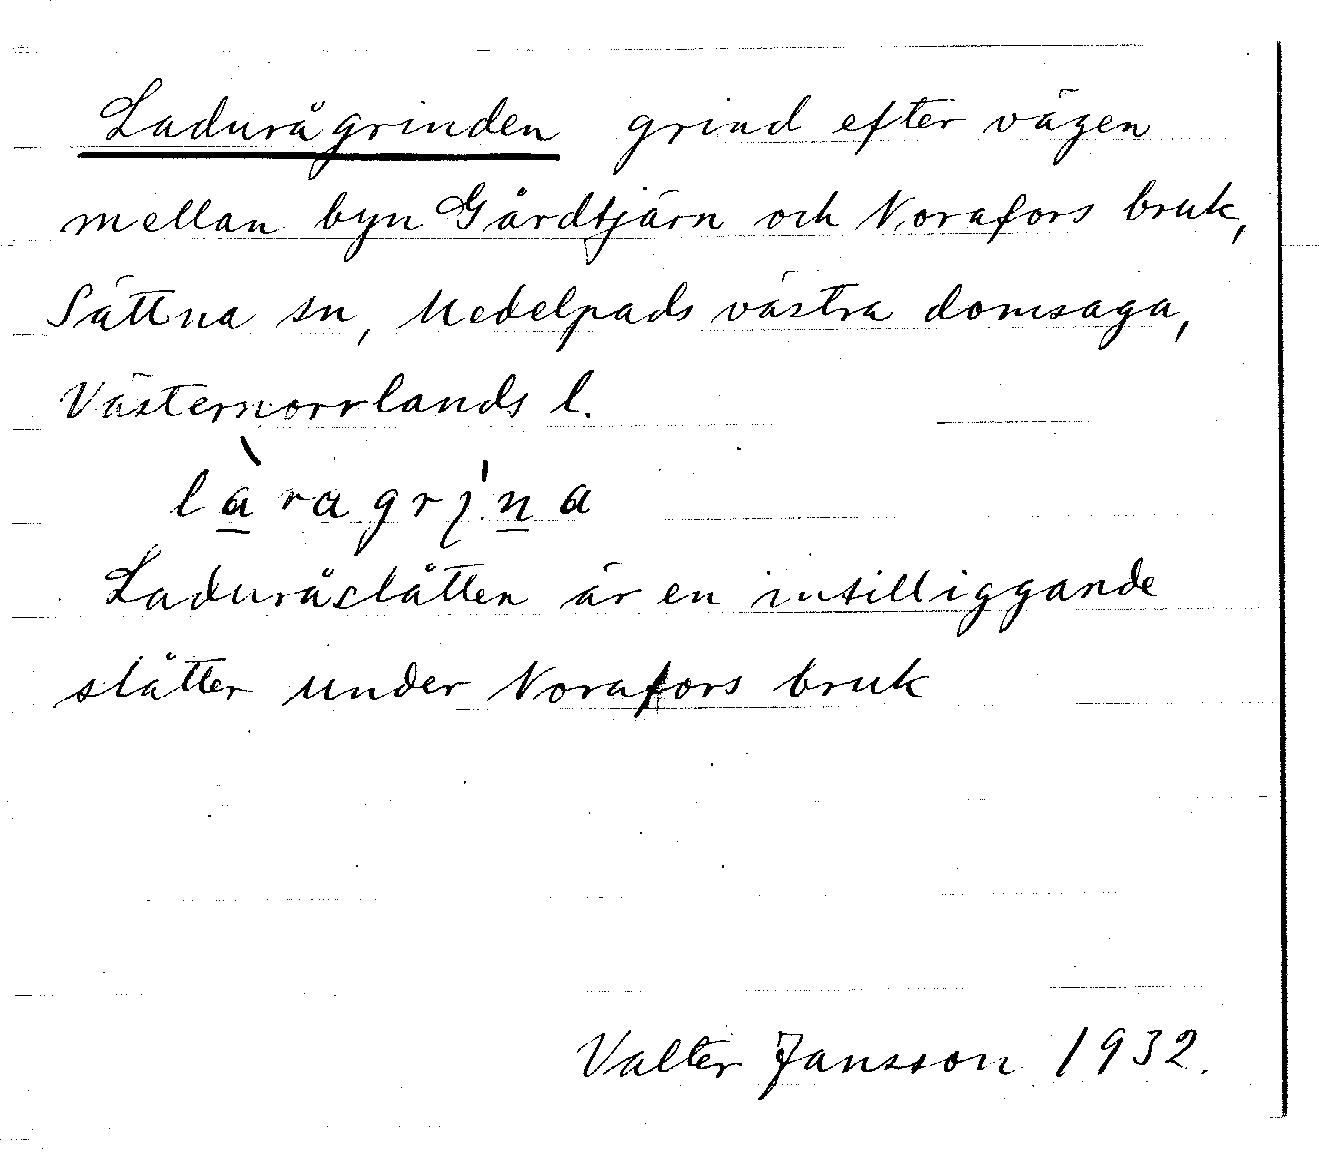 Ladurågrinden grind efter vägen
mellan byn Gårdtjärn och Norafors bruk,
Sättna sn, Medelpads västra domsaga,
Västernorrlands l.
làragrị́na
Laduråslåtten är en intilliggande
slåtter under Norafors bruk
Valter Jansson 1932.